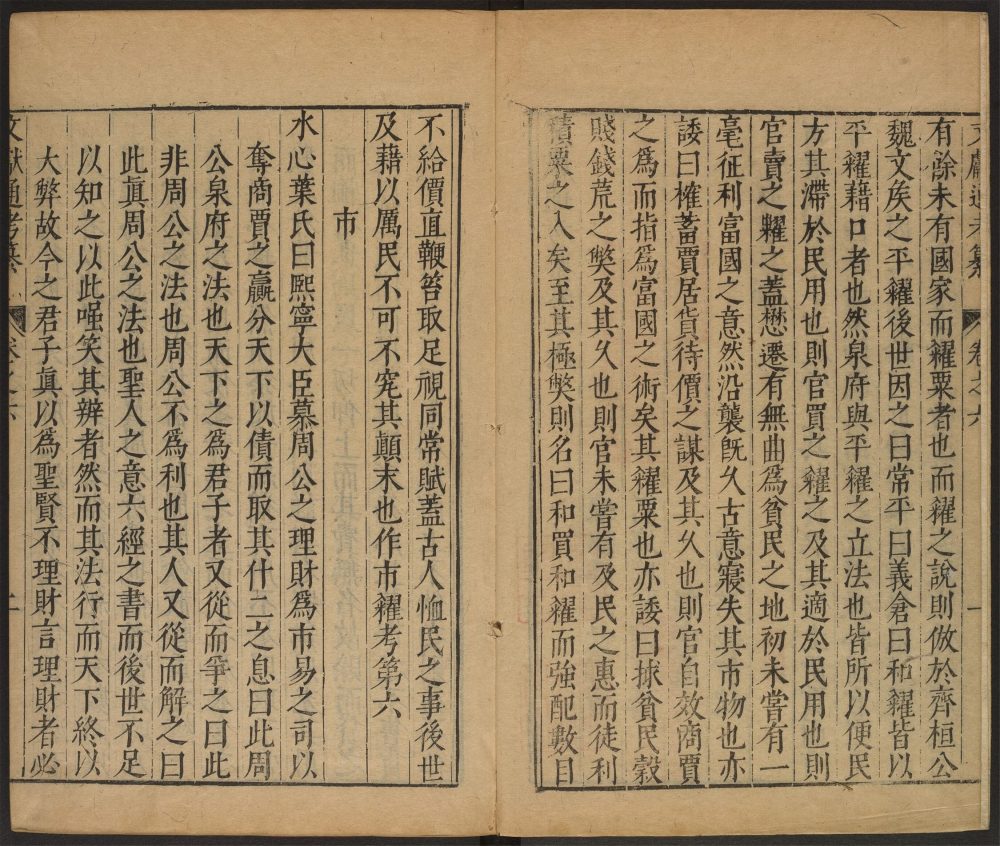 文獻通考纂 卷之六 一
有餘未有國家而糴粟者也而糴之說則倣於齊桓公
魏文矦之平糴後世因之曰常平曰義倉曰和糴皆以
平糴藉口者也然泉府與平糴之立法也皆所以便民
方其滯於民用也則官買之糴之及其適於民用也則
官賣之糶之蓋懋遷有無曲爲貧民之地初未嘗有一
毫征利富國之意然沿襲旣乆古意寖失其市物也亦
諉曰榷蓄賈居貨待價之謀及其乆也則官自效商賈
之爲而指爲富國之術矣其糴粟也亦諉曰捄貧民榖
賤錢荒之獘及其乆也則官未嘗有及民之惠而徒利
積粟之入矣至其極獘則名曰和買和糴而強配數目
不給價直鞭笞取足視同常賦蓋古人恤民之事後世
及藉以厲民不可不究其顛末也作市糴考第六
市
水心葉氏曰熈寧大臣慕周公之理財爲市易之司以
奪商賈之贏分天下以債而取其什二之息曰此周
公泉府之法也天下之爲君子者又從而爭之曰此
非周公之法也周公不爲利也其人又從而解之曰
此眞周公之法也聖人之意六經之書而後世不足
以知之以此嗤笑其辨者然而其法行而天下終以
大弊故今之君子眞以爲聖賢不理財言理財者必
文獻通考纂 卷之六 二